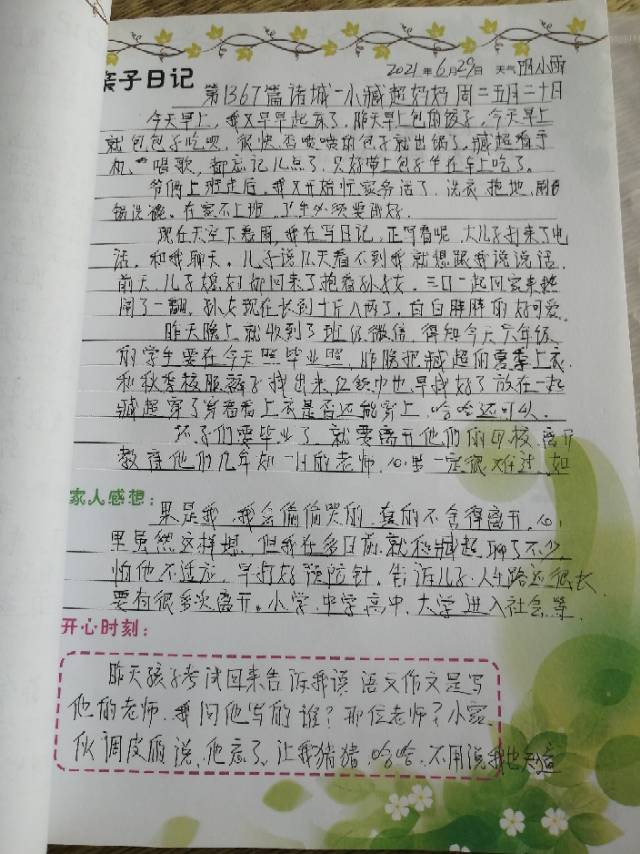 亲子日记
2021年6月29日 天气 阴小雨
第1367篇诸城一小臧超妈妈 周二五月二十日
今天早上,我又早早起床了,昨天早上包的饺子,今天早上
就包包子吃吧,很快,香喷喷的包子就出锅了,臧超看手
机,唱歌,都忘记几点了,只好带上包子坐在车上吃了。
爷俩上班走后,我又开始忙家务活了,洗衣拖地,刷
锅洗碗。在家不上班,卫生必须要做好。
现在天空下着雨,我在写日记,正写着呢,大儿子打来了电
话,和我聊天,儿子说几天看不到我就想跟我说说话,
前天,儿子媳妇都回来了抱着孙女,三口一起回家来热
闹了一翻,孙女现在长到十斤八两了,白白胖胖的好可爱。
昨天晚上就收到了班级微信,得知今天六年级
的学生要在今天照毕业照,昨晚把臧超的夏季上衣
和秋季校服裤子找出来,红领巾也早找好了放在一起
臧超穿了穿看看上衣是否还能穿上,哈哈还可以,
孩子们要毕业了,就要离开他们的母校,离开
教育他们几年如一日的老师,心里一定很难过,如
家人感想:
果是我,我会偷偷哭的,真的不舍得离开,心
里虽然这样想,但我在多日前就和臧超聊了不少
怕他不适应,早打好预防针,告诉儿子,人生路还很长
要有很多次离开。小学,中学,高中,大学,进入社会等。
开心时刻:
昨天孩子考试回来告诉我说语文作文是写
他的老师,我问他写的谁?那位老师?小家
伙调皮的说,他忘了,让我猜猜,哈哈,不用说我也知道